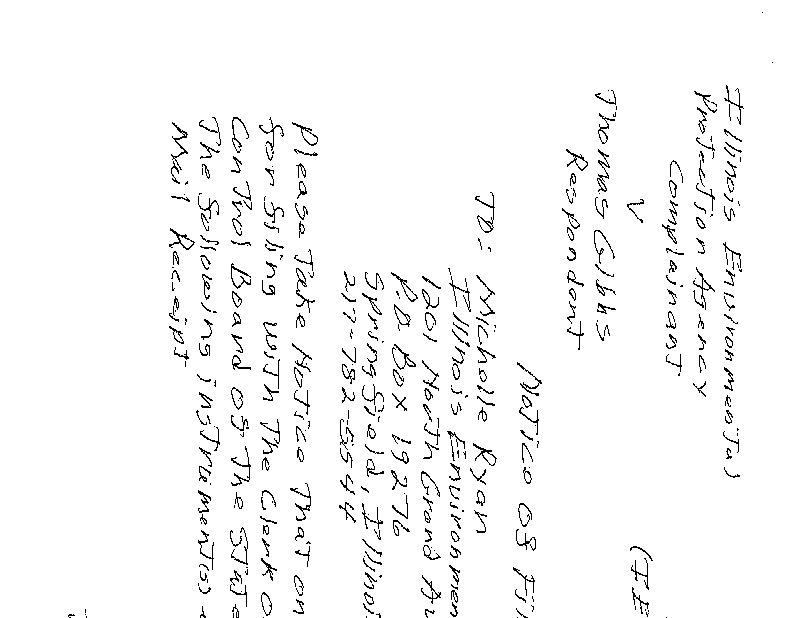 Illinois Environmental
Protection Agency
Complainant
V
(IE
Thomas Gibbs
Respondent
Notice of Fil
TO: Michelle Ryan
Illinois Environmen
1201 North Grand Av
P.O. Box 19276
Springfield, Illinoi
217-782-5544
Please Take Notice That on
for filing with The Clerk o
Control Board of The State
The following instrument(s)
Mail Receipt